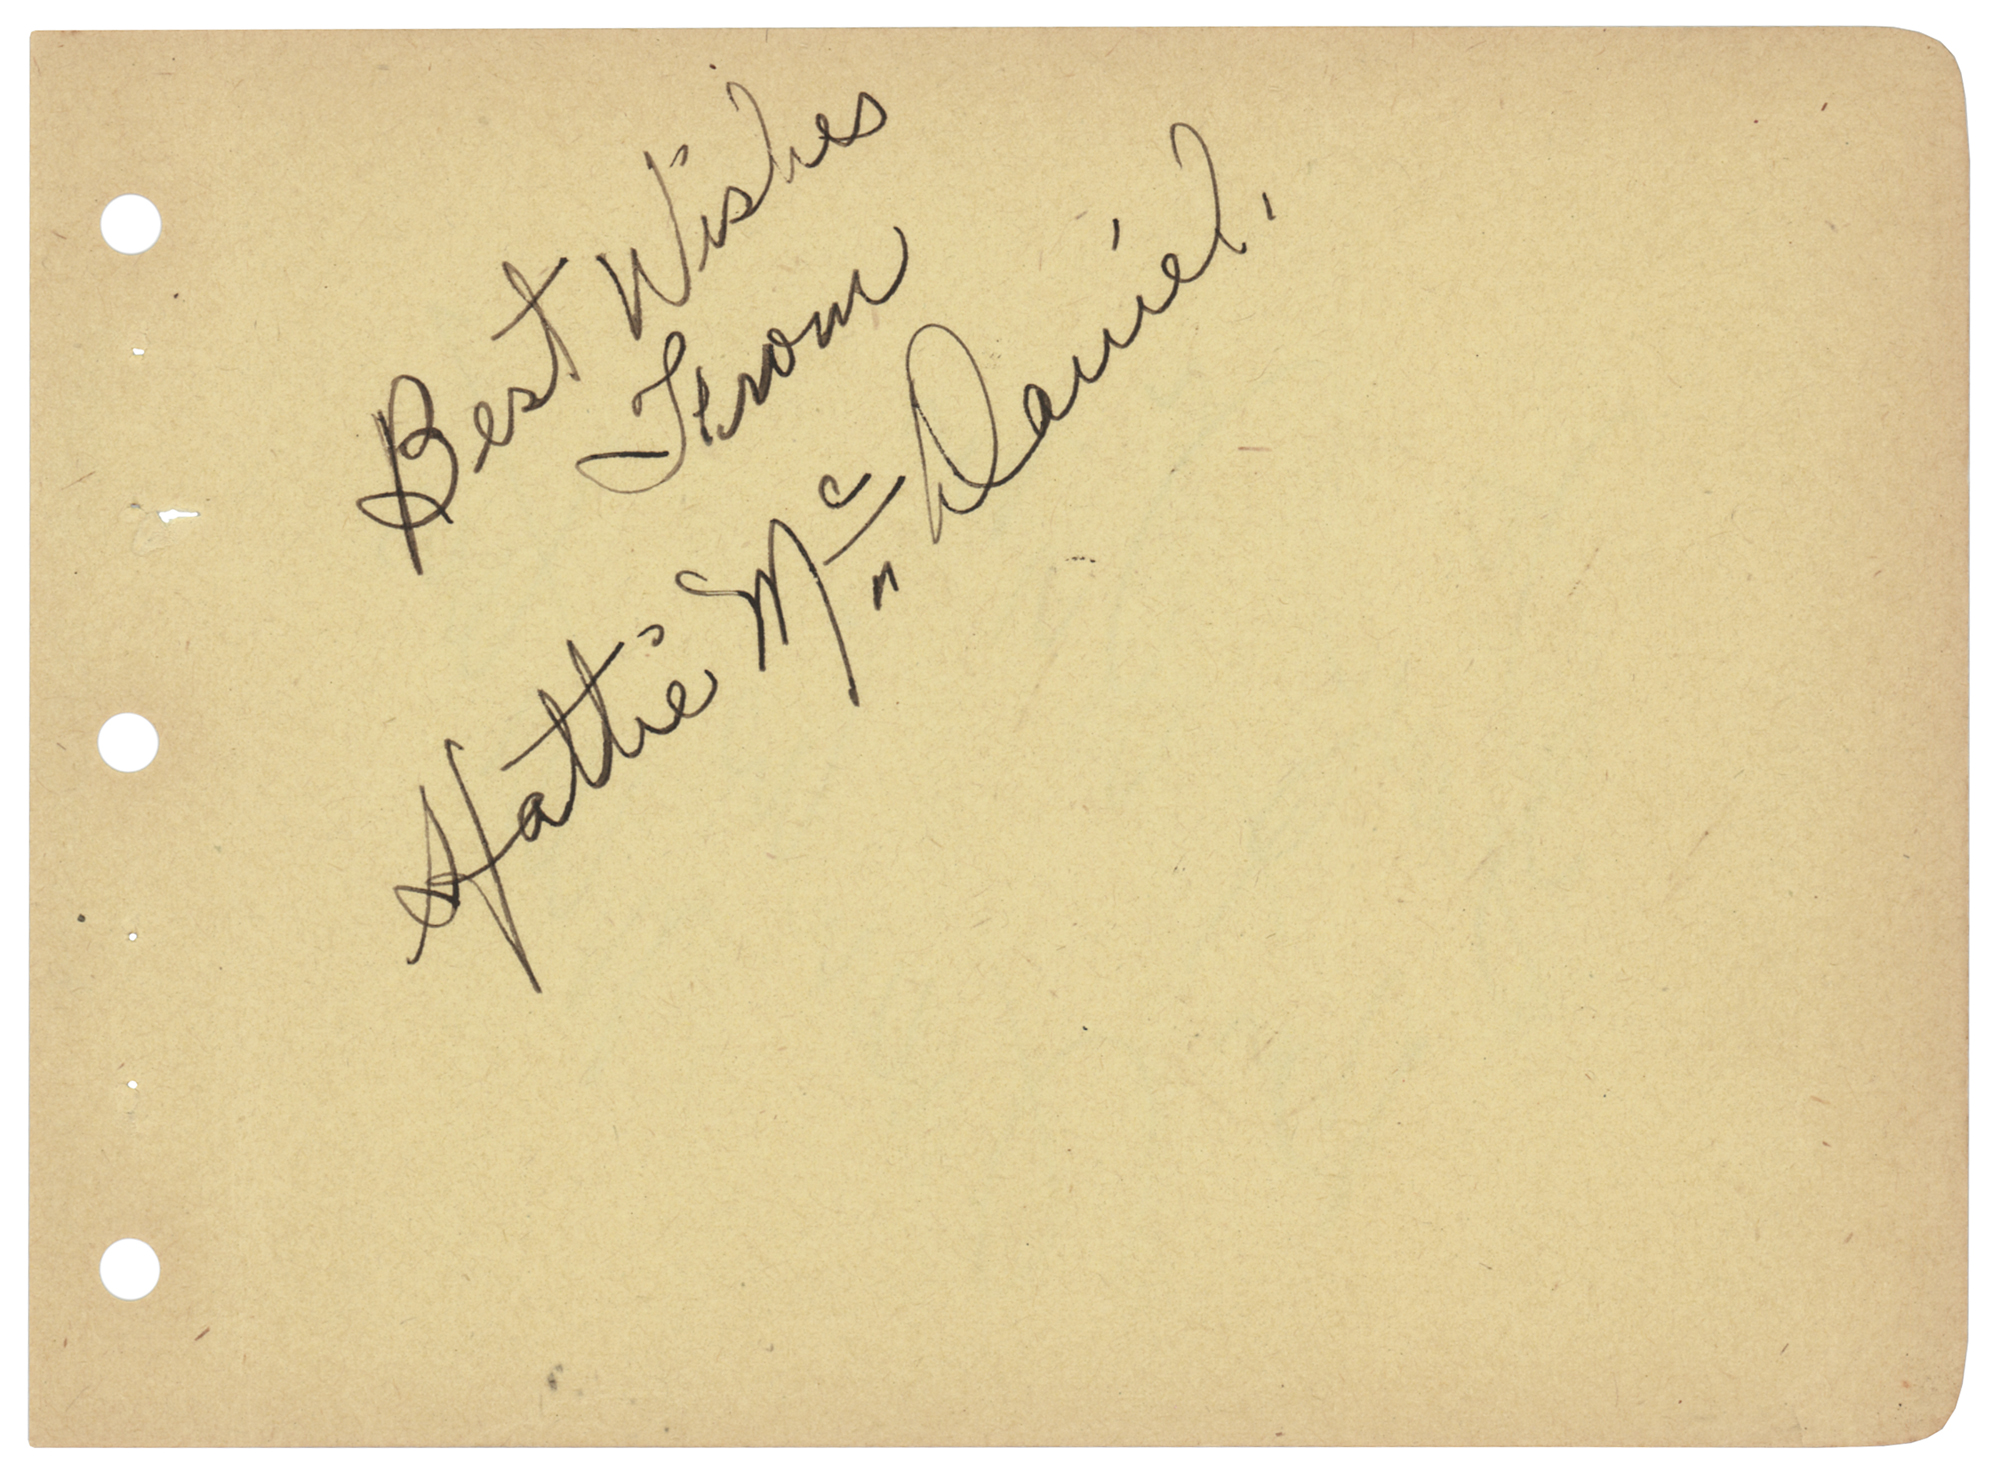 Best Wishes
From
Hattie McDaniel.